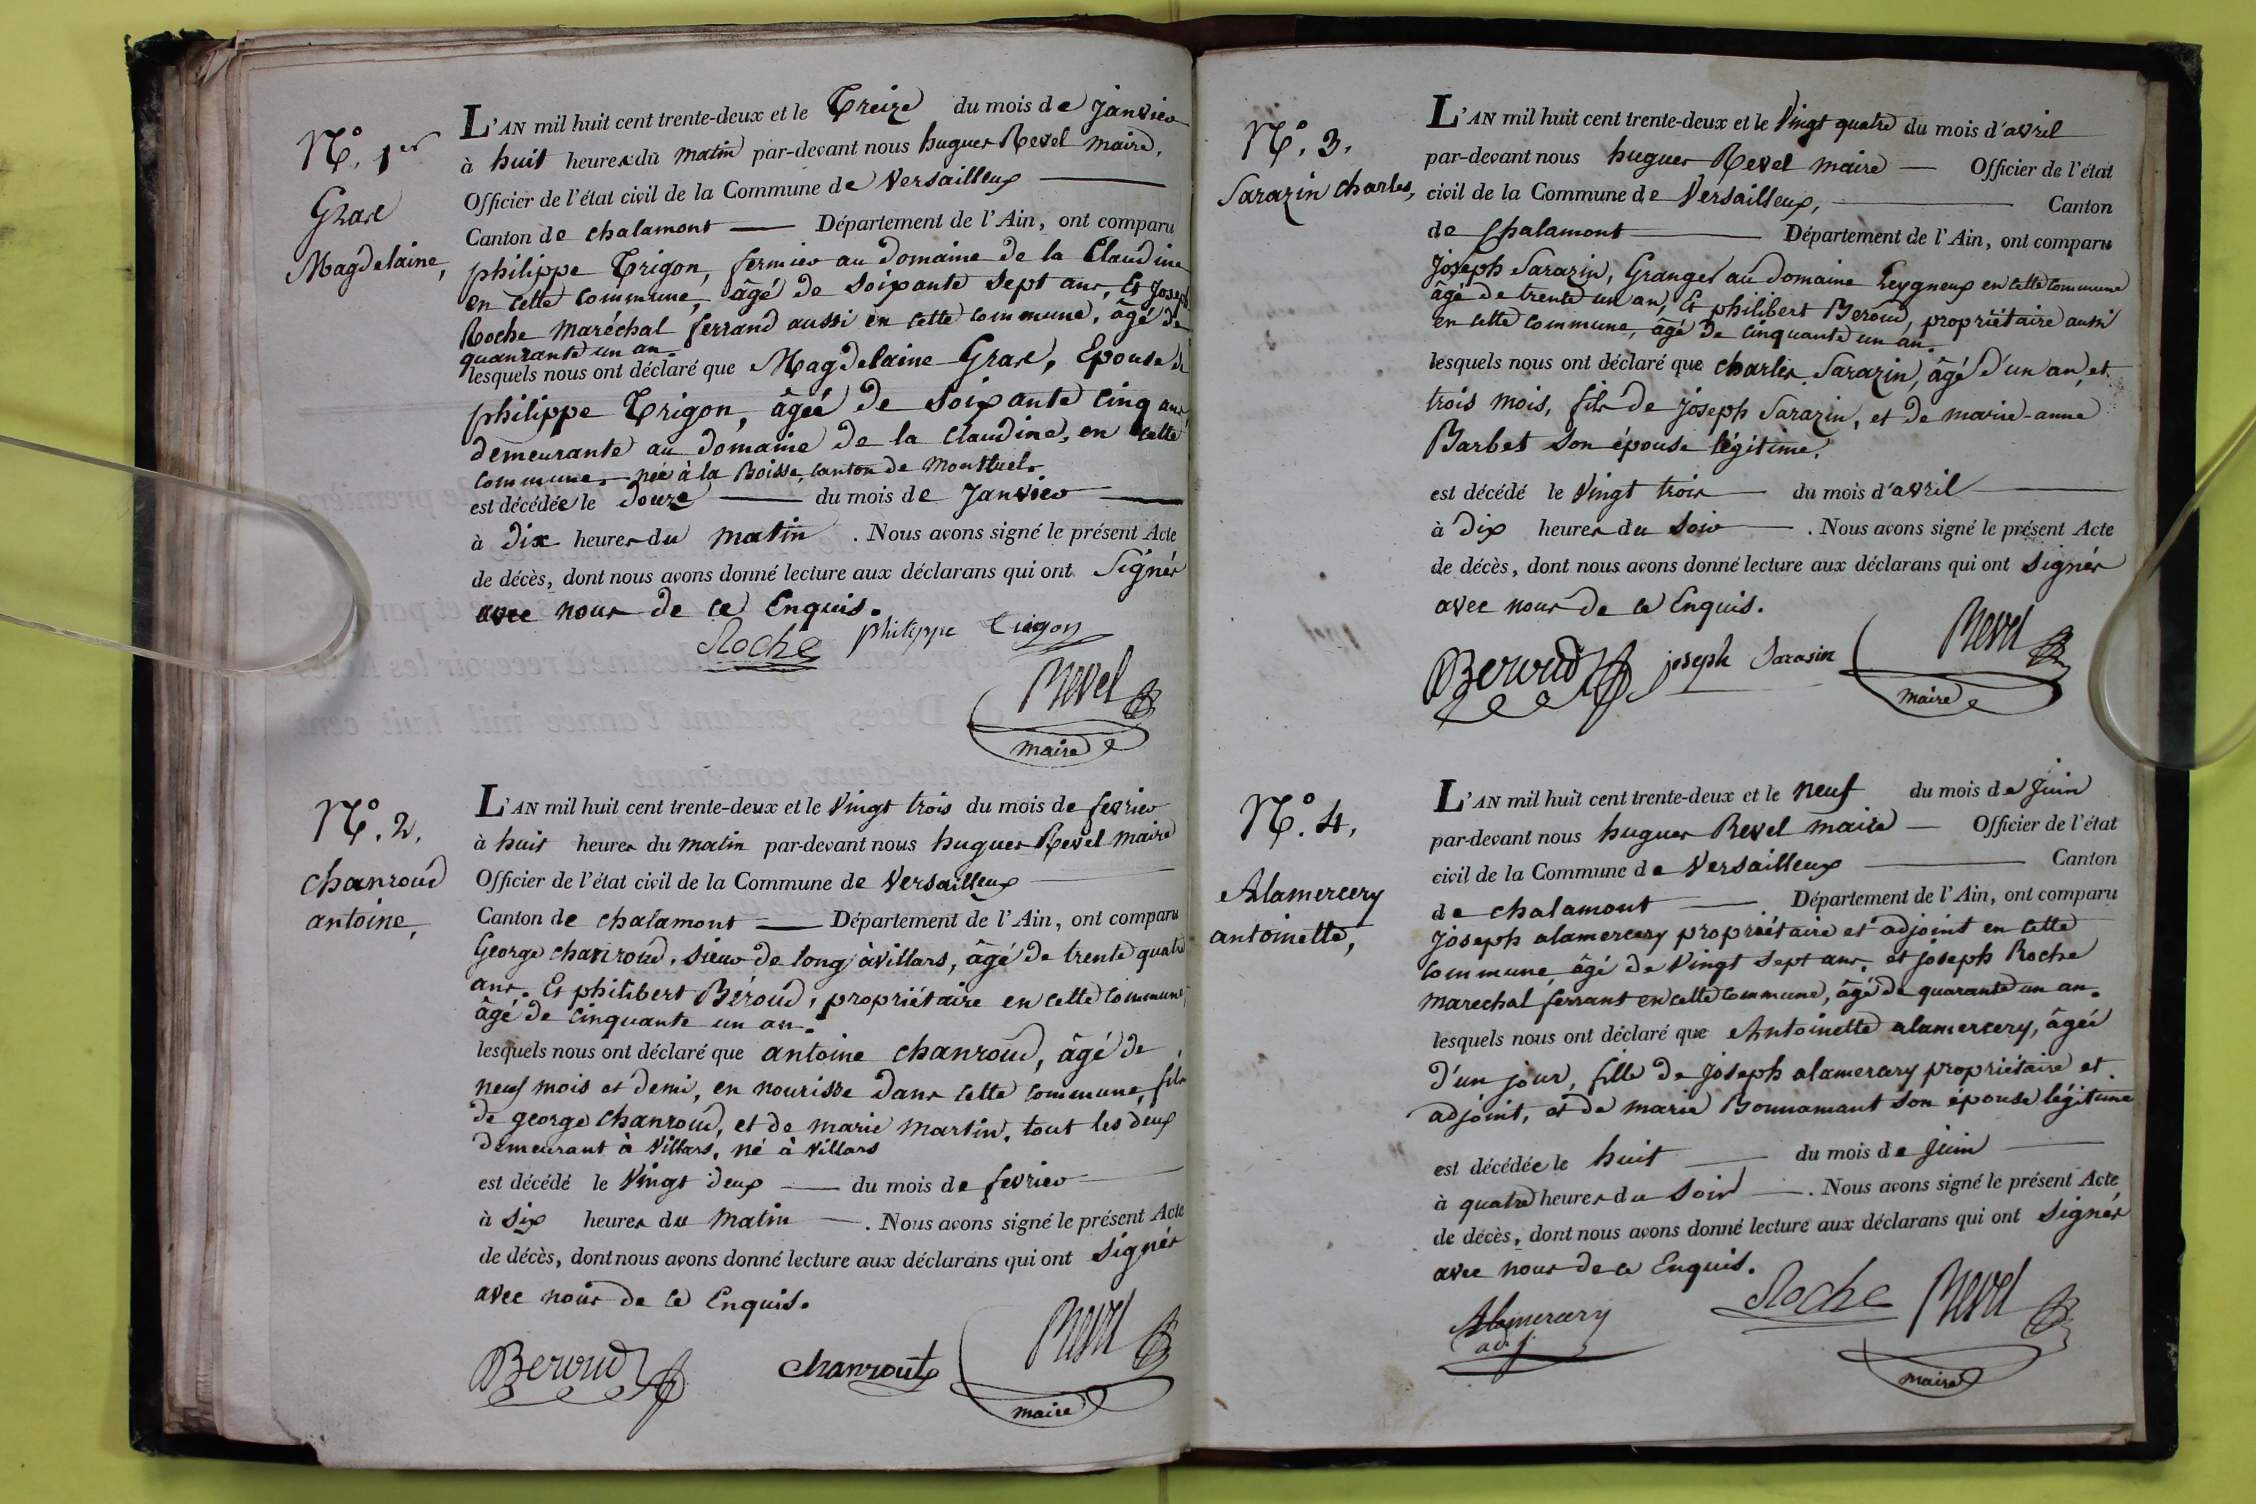 N.° 1er
Grase
Magdelaine,
L'AN mil huit cent trente-deux et le Treize du mois de Janvier
à huit heures du matin par-devant nous hugues Revel maire,
Officier de l'état civil de la Commune de Versailleux
Canton de chalamont Département de l'Ain, ont comparu
philippe Trigon, fermier au domaine de la Claudine
en cette commune, âgé de soixante sept ans, Et Joseph
Roche maréchal ferrand aussi en cette commune, âgé de
quanrante un an.
lesquels nous ont déclaré que Magdelaine Grase, Epouse de
philippe Trigon, âgée de soixante cinq ans
demeurante au domaine de la Claudine, en cette
commune, née à la Boisse, canton de Montluel.
est décédée le Douze du mois de Janvier
à dix heures du matin . Nous avons signé le présent Acte
de décès, dont nous avons donné lecture aux déclarans qui ont Signés
avec nous de ce Enquis.
Roche philippe Trigon
Revel
maire
N.° 2,
chanroud
antoine,
L'AN mil huit cent trente-deux et le Vingt trois du mois de fevrier
à huit heures du matin par-devant nous hugues Revel maire
Officier de l'état civil de la Commune de Versailleux
Canton de chalamont Département de l'Ain, ont comparu
George chanroud, sieur de long à villars, âgé de trente quatre
ans. Et philibert Béroud, propriétaire en cette commune,
âgé de cinquante un an.
lesquels nous ont déclaré que antoine chanroud, âgé de
neuf mois et demi, en nourisse dans cette commune, fils
de george chanroud, et de marie martin, tout les deux
demeurant à Villars, né à Villars
est décédé le Vingt deux du mois de fevrier
à six heures du matin . Nous avons signé le présent Acte
de décès, dont nous avons donné lecture aux déclarans qui ont signés
avec nous de ce Enquis.
Beroud chanroud Revel
maire
N.° 3,
Sarazin charles,
L'AN mil huit cent trente-deux et le Vingt quatre du mois d'avril
par-devant nous hugues Revel maire Officier de l'état
civil de la Commune de Versailleux, Canton
de Chalamont Département de l'Ain, ont comparu
Joseph Sarazin, Granger au domaine Leygneux en cette commune
âgé de trente un an, Et philibert Beroud, propriétaire aussi
en cette commune, âgé de cinquante un an.
lesquels nous ont déclaré que charles Sarazin, âgé d'un an et
trois mois, fils de Joseph Sarazin, et de marie-anne
Barbet son épouse légitime.
est décédé le Vingt trois du mois d'avril
à dix heures du soir . Nous avons signé le présent Acte
de décès, dont nous avons donné lecture aux déclarans qui ont signés
avec nous de ce Enquis.
Beroud joseph Sarasin Revel
maire
N.° 4,
Alamercery
antoinette,
L'AN mil huit cent trente-deux et le neuf du mois de Juin
par-devant nous hugues Revel maire Officier de l'état
civil de la Commune de Versailleux Canton
de chalamont Département de l'Ain, ont comparu
Joseph alamercery propriétaire et adjoint en cette
commune, âgé de vingt sept ans, et joseph Roche
marechal ferrant en cette commune, âgé de quarante un an.
lesquels nous ont déclaré que Antoinette alamercery, âgée
d'un jour, fille de Joseph alamercery propriétaire et
adjoint, et de marie Bonnamant son épouse légitime
est décédée le huit du mois de Juin
à quatre heures du soir . Nous avons signé le présent Acte
de décès, dont nous avons donné lecture aux déclarans qui ont signés
avec nous de ce Enquis.
Alamercery Roche Revel
adj
maire